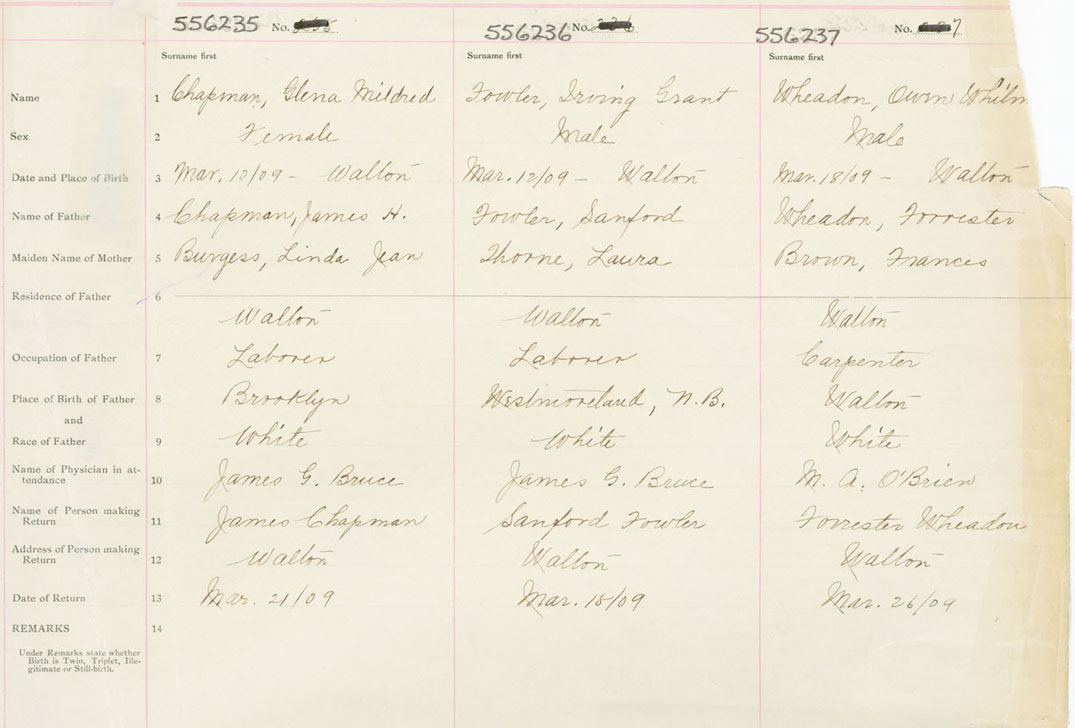 556235 No. 556236 No. 556237 No. 7
Surname first Surname first Surname first
Name 1 Chapman, Glena Mildred Fowler, Irving Grant Wheadon, Owen
Sex 2 Female Male Male
Date and Place of Birth 3 Mar. 10/09 - Walton Mar. 12/09 - Walton Mar. 18/09 - Walton
Name of Father 4 Chapman, James H. Fowler, Sanford Wheadon, Forrester
Maiden Name of Mother 5 Burgess, Linda Jean Thorne, Laura Brown, Frances
Residence of Father 6
Walton Walton Walton
Occupation of Father 7 Laborer Laborer Carpenter
Place of Birth of Father 8 Brooklyn Westmoreland, N.B. Walton
and
Race of Father 9 White White White
Name of Physician in at-
tendance 10 James G. Bruce James G. Bruce M. A. O'Brien
Name of Person making
Return 11 James Chapman Sanford Fowler Forrester Wheadon
Address of Person making
Return 12 Walton Walton Walton
Date of Return 13 Mar. 21/09 Mar. 18/09 Mar. 26/09
REMARKS 14
Under Remarks state whether
Birth is Twin, Triplet, Ille-
gitimate or Still-birth.